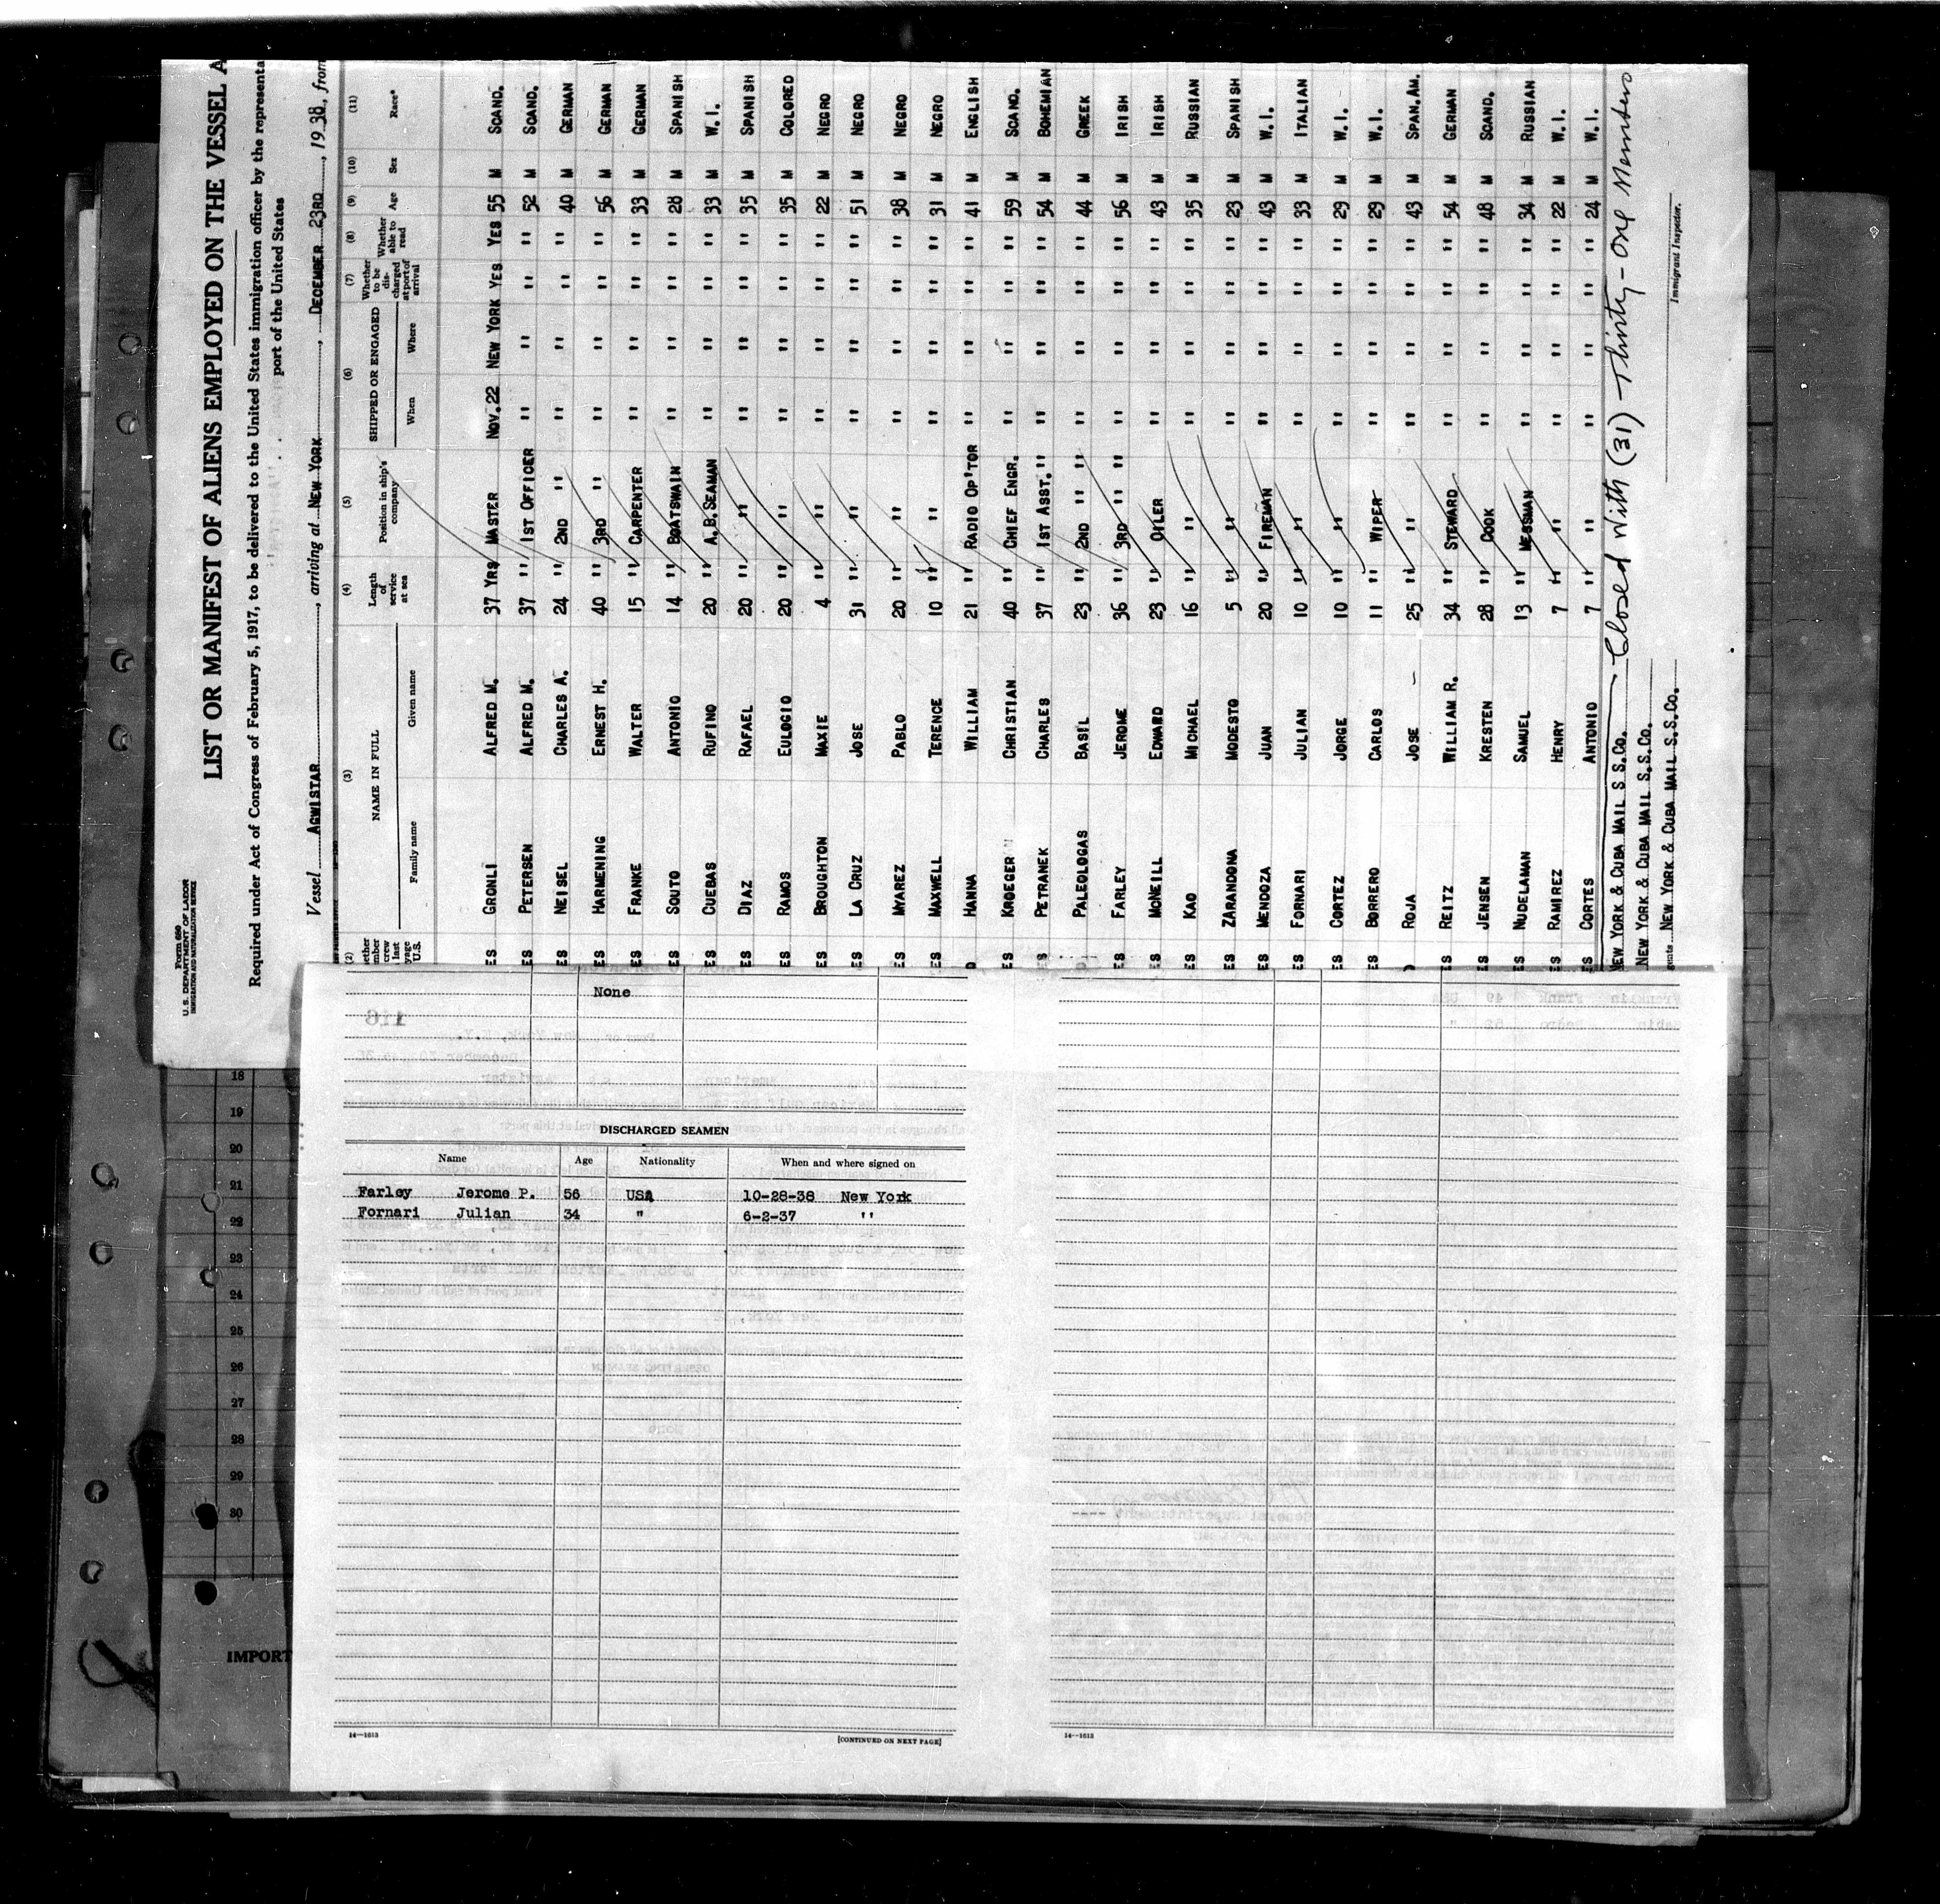 Form 680
U. S. DEPARTMENT OF LABOR
IMMIGRATION AND NATURALIZATION SERVICE
LIST OR MANIFEST OF ALIENS EMPLOYED ON THE VESSEL A
Required under Act of Congress of February 5, 1917, to be delivered to the United States immigration officer by the representa
port of the United States
Vessel AGWISTAR, arriving at NEW YORK, DECEMBER 23RD, 1938, from
(2) (3) (4) (5) (6) (7) (8) (9) (10) (11)
NAME IN FULL Length of service at sea Position in ship's company SHIPPED OR ENGAGED Whether to be discharged at port of arrival Whether able to read Age Sex Race*
Family name Given name When Where
ES GRONLI ALFRED M. 37 YRS MASTER NOV. 22 NEW YORK YES YES 55 M SCAND.
ES PETERSEN ALFRED M. 37 " 1ST OFFICER " " " " 52 M SCAND.
ES NEISEL CHARLES A. 24 " 2ND " " " " " 40 M GERMAN
ES HARMENING ERNEST H. 40 " 3RD " " " " " 56 M GERMAN
ES FRANKE WALTER 15 " CARPENTER " " " " 33 M GERMAN
ES SOUTO ANTONIO 14 " BOATSWAIN " " " " 28 M SPANISH
ES CUEBAS RUFINO 20 " A.B. SEAMAN " " " " 33 M W.I.
ES DIAZ RAFAEL 20 " " " " " " 35 M SPANISH
ES RAMOS EULOGIO 20 " " " " " " 35 M COLORED
ES BROUGHTON MAXIE 4 " " " " " " 22 M NEGRO
ES LA CRUZ JOSE 31 " " " " " " 51 M NEGRO
ES MYAREZ PABLO 20 " " " " " " 38 M NEGRO
ES MAXWELL TERENCE 10 " " " " " " 31 M NEGRO
HANNA WILLIAM 21 " RADIO OP'TOR " " " " 41 M ENGLISH
ES KROEGER CHRISTIAN 40 " CHIEF ENGR. " " " " 59 M SCAND.
ES PETRANEK CHARLES 37 " 1ST ASST. " " " " " 54 M BOHEMIAN
PALEOLOGAS BASIL 23 " 2ND " " " " " " 44 M GREEK
ES FARLEY JEROME 36 " 3RD " " " " " " 56 M IRISH
ES MCNEILL EDWARD 23 " OILER " " " " 43 M IRISH
ES KAO MICHAEL 16 " " " " " " 35 M RUSSIAN
ES ZARANDONA MODESTO 5 " " " " " " 23 M SPANISH
ES MENDOZA JUAN 20 " FIREMAN " " " " 43 M W.I.
ES FORNARI JULIAN 10 " " " " " " 33 M ITALIAN
ES CORTEZ JORGE 10 " " " " " " 29 M W.I.
ES BORRERO CARLOS 11 " WIPER " " " " 29 M W.I.
ROJA JOSE 25 " " " " " " 43 M SPAN. AM.
ES REITZ WILLIAM R. 34 " STEWARD " " " " 54 M GERMAN
ES JENSEN KRESTEN 28 " COOK " " " " 48 M SCAND.
ES NUDELMAN SAMUEL 13 " MESSMAN " " " " 34 M RUSSIAN
ES RAMIREZ HENRY 7 " " " " " " 22 M W.I.
ES CORTES ANTONIO 7 " " " " " " 24 M W.I.
NEW YORK & CUBA MAIL S.S.CO. Closed With (31) - Thirty-one Members
NEW YORK & CUBA MAIL S.S.CO.
NEW YORK & CUBA MAIL S.S.CO. Immigrant Inspector.
18
19
20
21
22
23
24
25
26
27
28
29
30
IMPORT
None
DISCHARGED SEAMEN
Name Age Nationality When and where signed on
Farley Jerome P. 56 USA 10-28-38 New York
Fornari Julian 34 " 6-2-37 "
14—1613 [CONTINUED ON NEXT PAGE]
14—1613